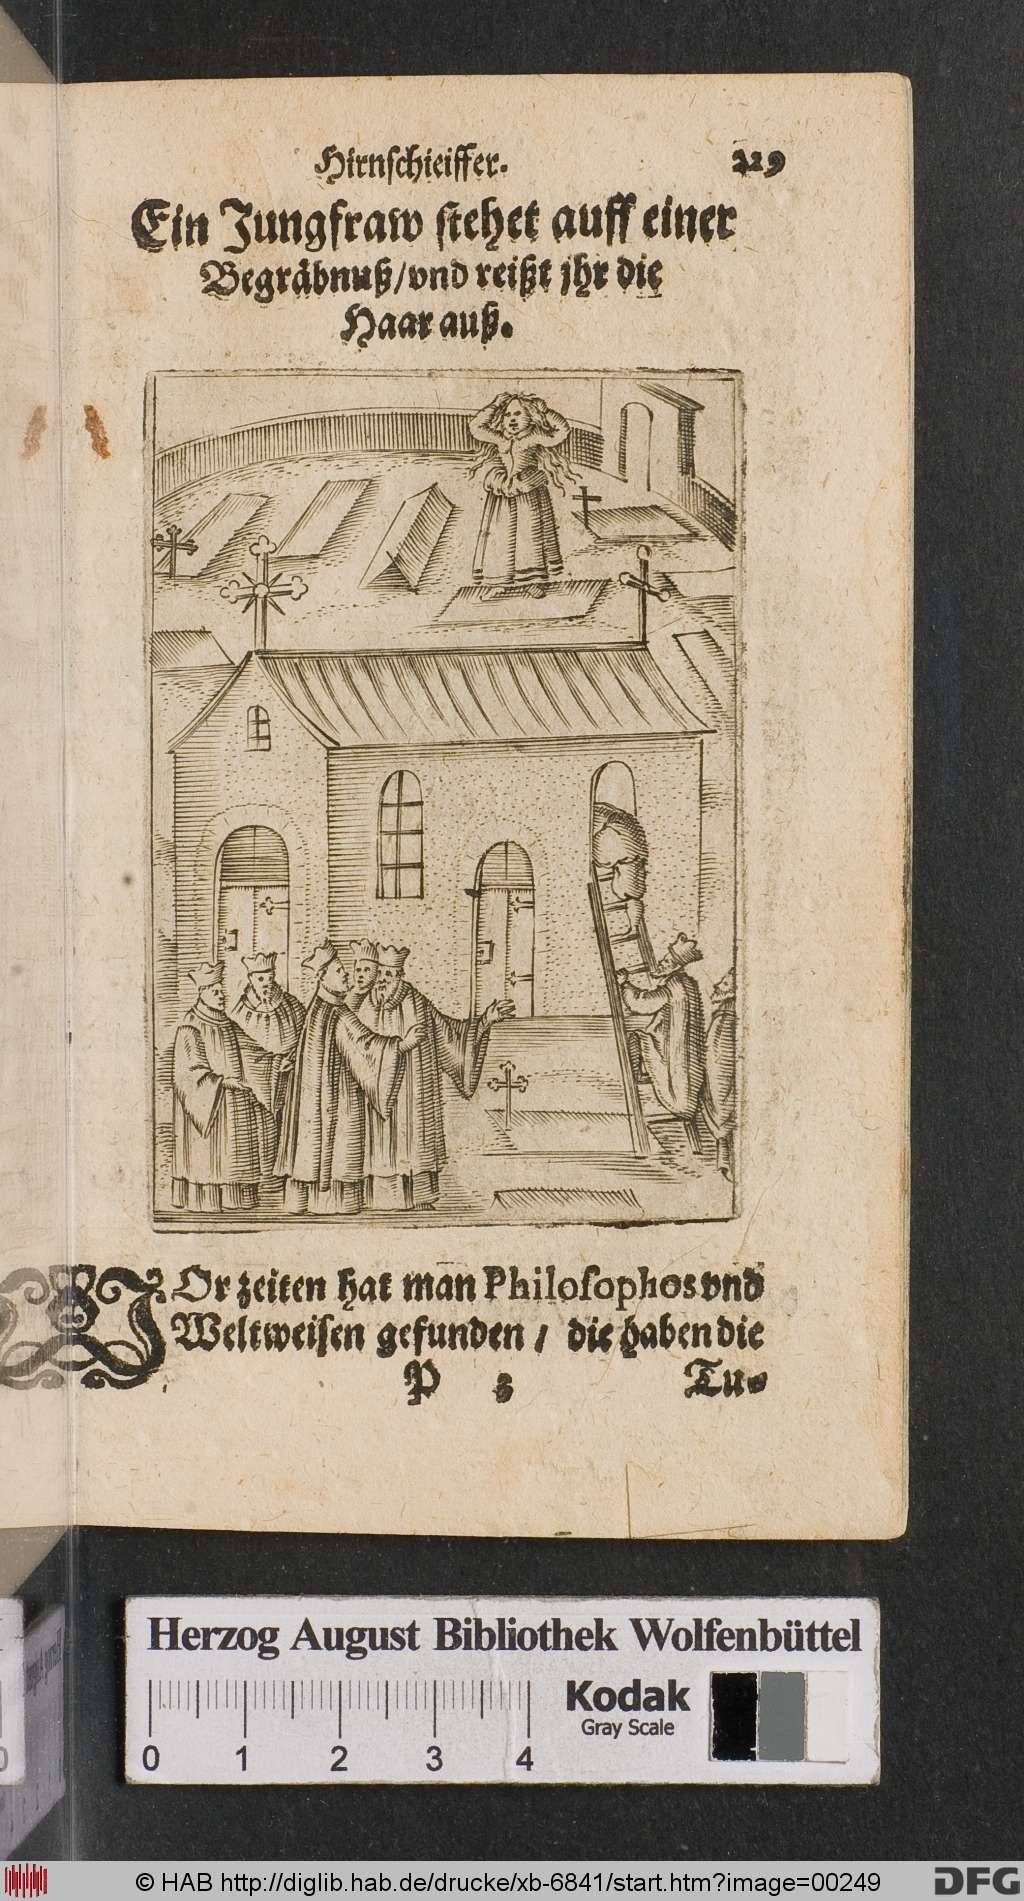 Hirnschleiffer.
229
Ein Jungfraw stehet auff einer
Begräbnuß/vnd reißt jhr die
Haar auß.
VOr zeiten hat man Philosophos vnd
Weltweisen gefunden / die haben die
P 3 Tu-
Herzog August Bibliothek Wolfenbüttel
Kodak
Gray Scale
0 1 2 3 4
© HAB http://diglib.hab.de/drucke/xb-6841/start.htm?image=00249
DFG